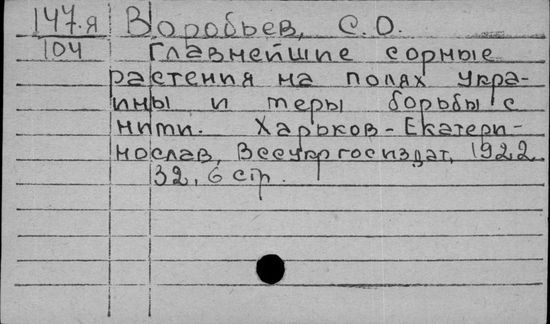 147.я Воробьев, С.О.
104 Главнейшие сорные
растения на полях Укра-
ины и меры борьбы с
ними. Харьков-Екатери-
нослав, Всеукргосиздат, 1922.
32, 6 стр.